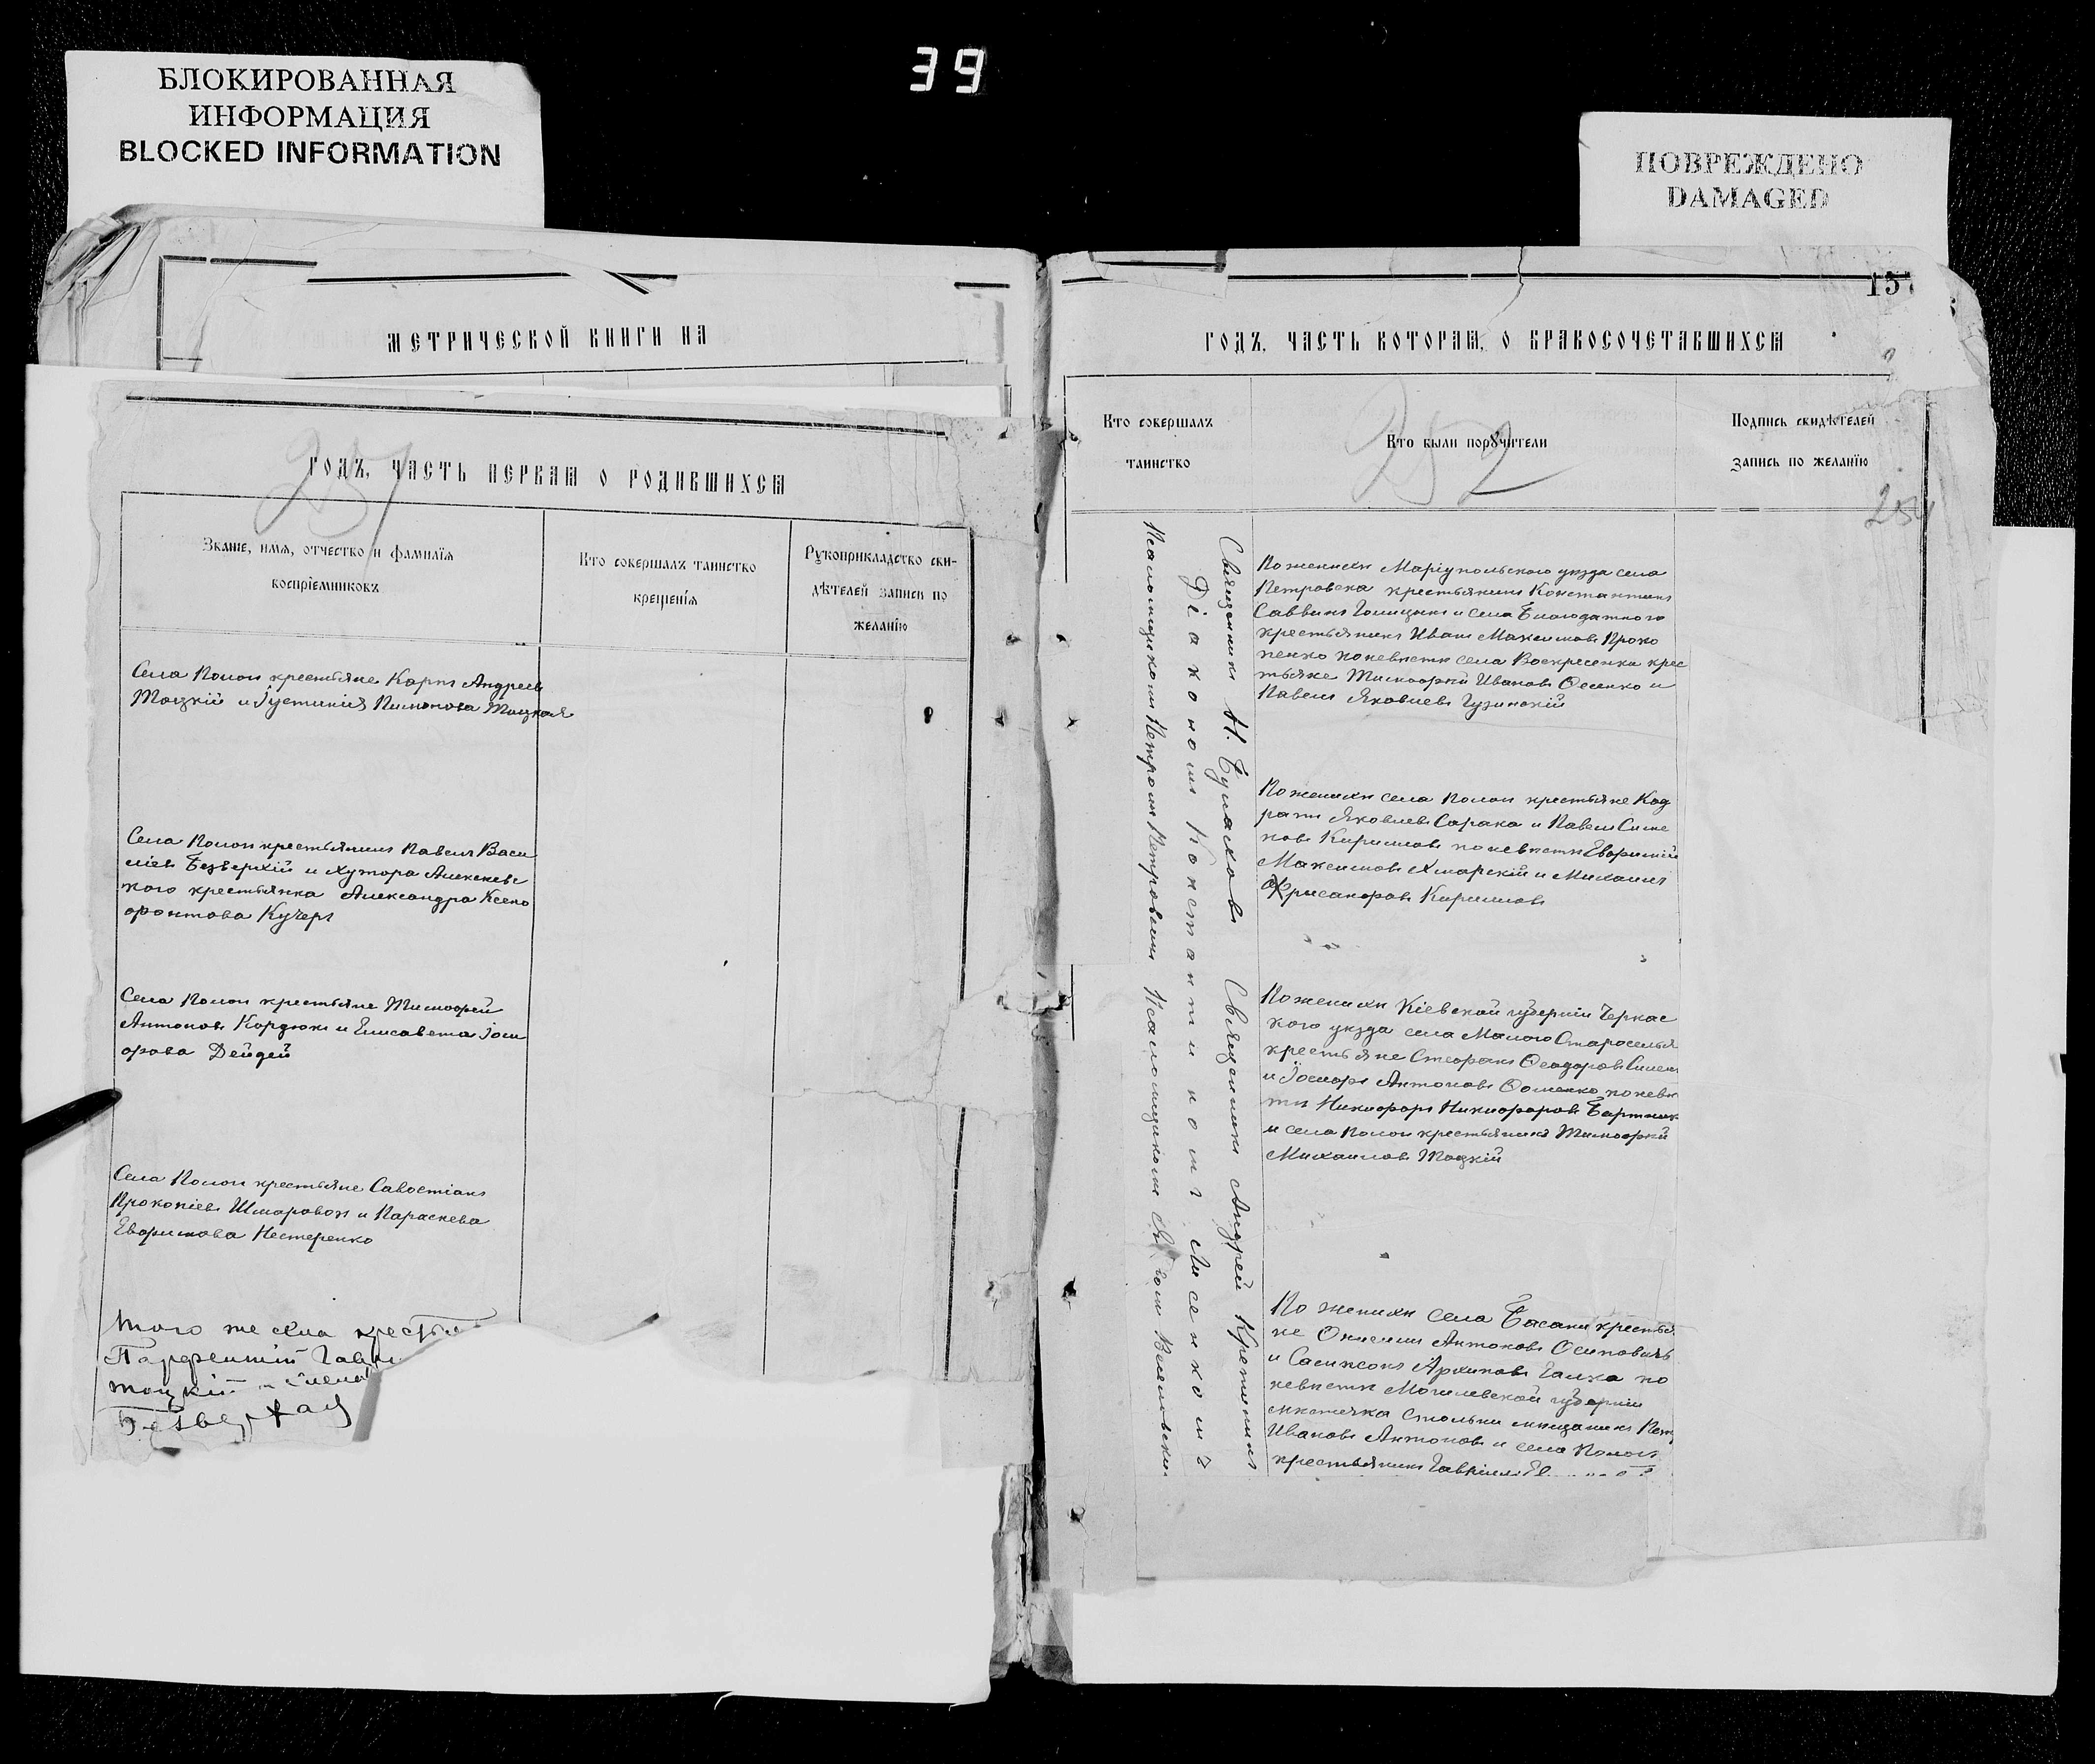 39
БЛОКИРОВАННАЯ
ИНФОРМАЦИЯ
BLOCKED INFORMATION
ПОВРЕЖДЕНО
DAMAGED
МЕТРИЧЕСКОЙ КНИГИ НА
251
ГОДЪ, ЧАСТЬ ПЕРВАЯ О РОДИВШИХСЯ
Званіе, имя, отчество и фамилїя
воспрїемниковъ
Кто совершалъ таинство
крещенїя
Рукоприкладство сви-
дѣтелей записи по
желанїю
Села Пологи крестьяне Карпъ Андреевъ
Тоцкій и Іустинія Пимонова Тоцкая
Села Пологи крестьянинъ Павелъ Васи
ліевъ Безверхій и хутора Алексѣевс
кого крестьянка Александра Ксено
фонтова Кучеръ
Села Пологи крестьяне Тимофей
Антоновъ Кордюкъ и Елисавета Іоси
фова Дейдей
Села Пологи крестьяне Савостіанъ
Прокопіевъ Шмаровоз и Параскева
Евфимова Нестеренко
того же села кресть
Парфентій Гаври
тоцкій и Елена
Безверхая
157
ГОДЪ, ЧАСТЬ ВТОРАЯ, О БРАКОСОЧЕТАВШИХСЯ
Кто совершалъ
таинство
252
Кто были порꙋчители
Подпись свидѣтелей
запись по желанїю
254
Священникъ Н. Булаховъ Священникъ Андрей
Діакономъ Константиномъ Лисенкомъ
Псаломщикомъ Петромъ Петровымъ Псаломщикомъ
По женихѣ Маріупольского уѣзда села
Петровска крестьянинъ Константинъ
Саввинъ Голицынъ и села Благодатного
крестьянинъ Иванъ Максимовъ Проко
пенко по невѣстѣ села Воскресенка крес
тьяне Тимофей Ивановъ Фесенко и
Павелъ Яковлевъ Гузинскій
По женихѣ села Пологи крестьяне Код
ратъ Яковлевъ Сорока и Павелъ Симе
новъ Кириловъ по невѣстѣ Евфимій
Максимовъ Хмарскій и Михаилъ
Хрисанфовъ Кириловъ
По женихѣ Кіевской губерніи Черкас
кого уѣзда села Малого Староселья
крестьяне Стефанъ Феодоровъ
и Іосифъ Антоновъ Фоменко по невѣс
тѣ Никифоръ Никифоровъ Бартник
и села Пологи крестьянинъ Тимофей
Михаиловъ Тоцкій
По женихѣ села Басани крестья
не Онисимъ Антоновъ Осиповичъ
и Самисонъ Архиповъ Галка по
невѣстѣ Могилевской губерніи
мѣстечка Стольни мѣщанинъ Петр
Ивановъ Антоновъ и села Пологъ
крестьянинъ Гавріилъ